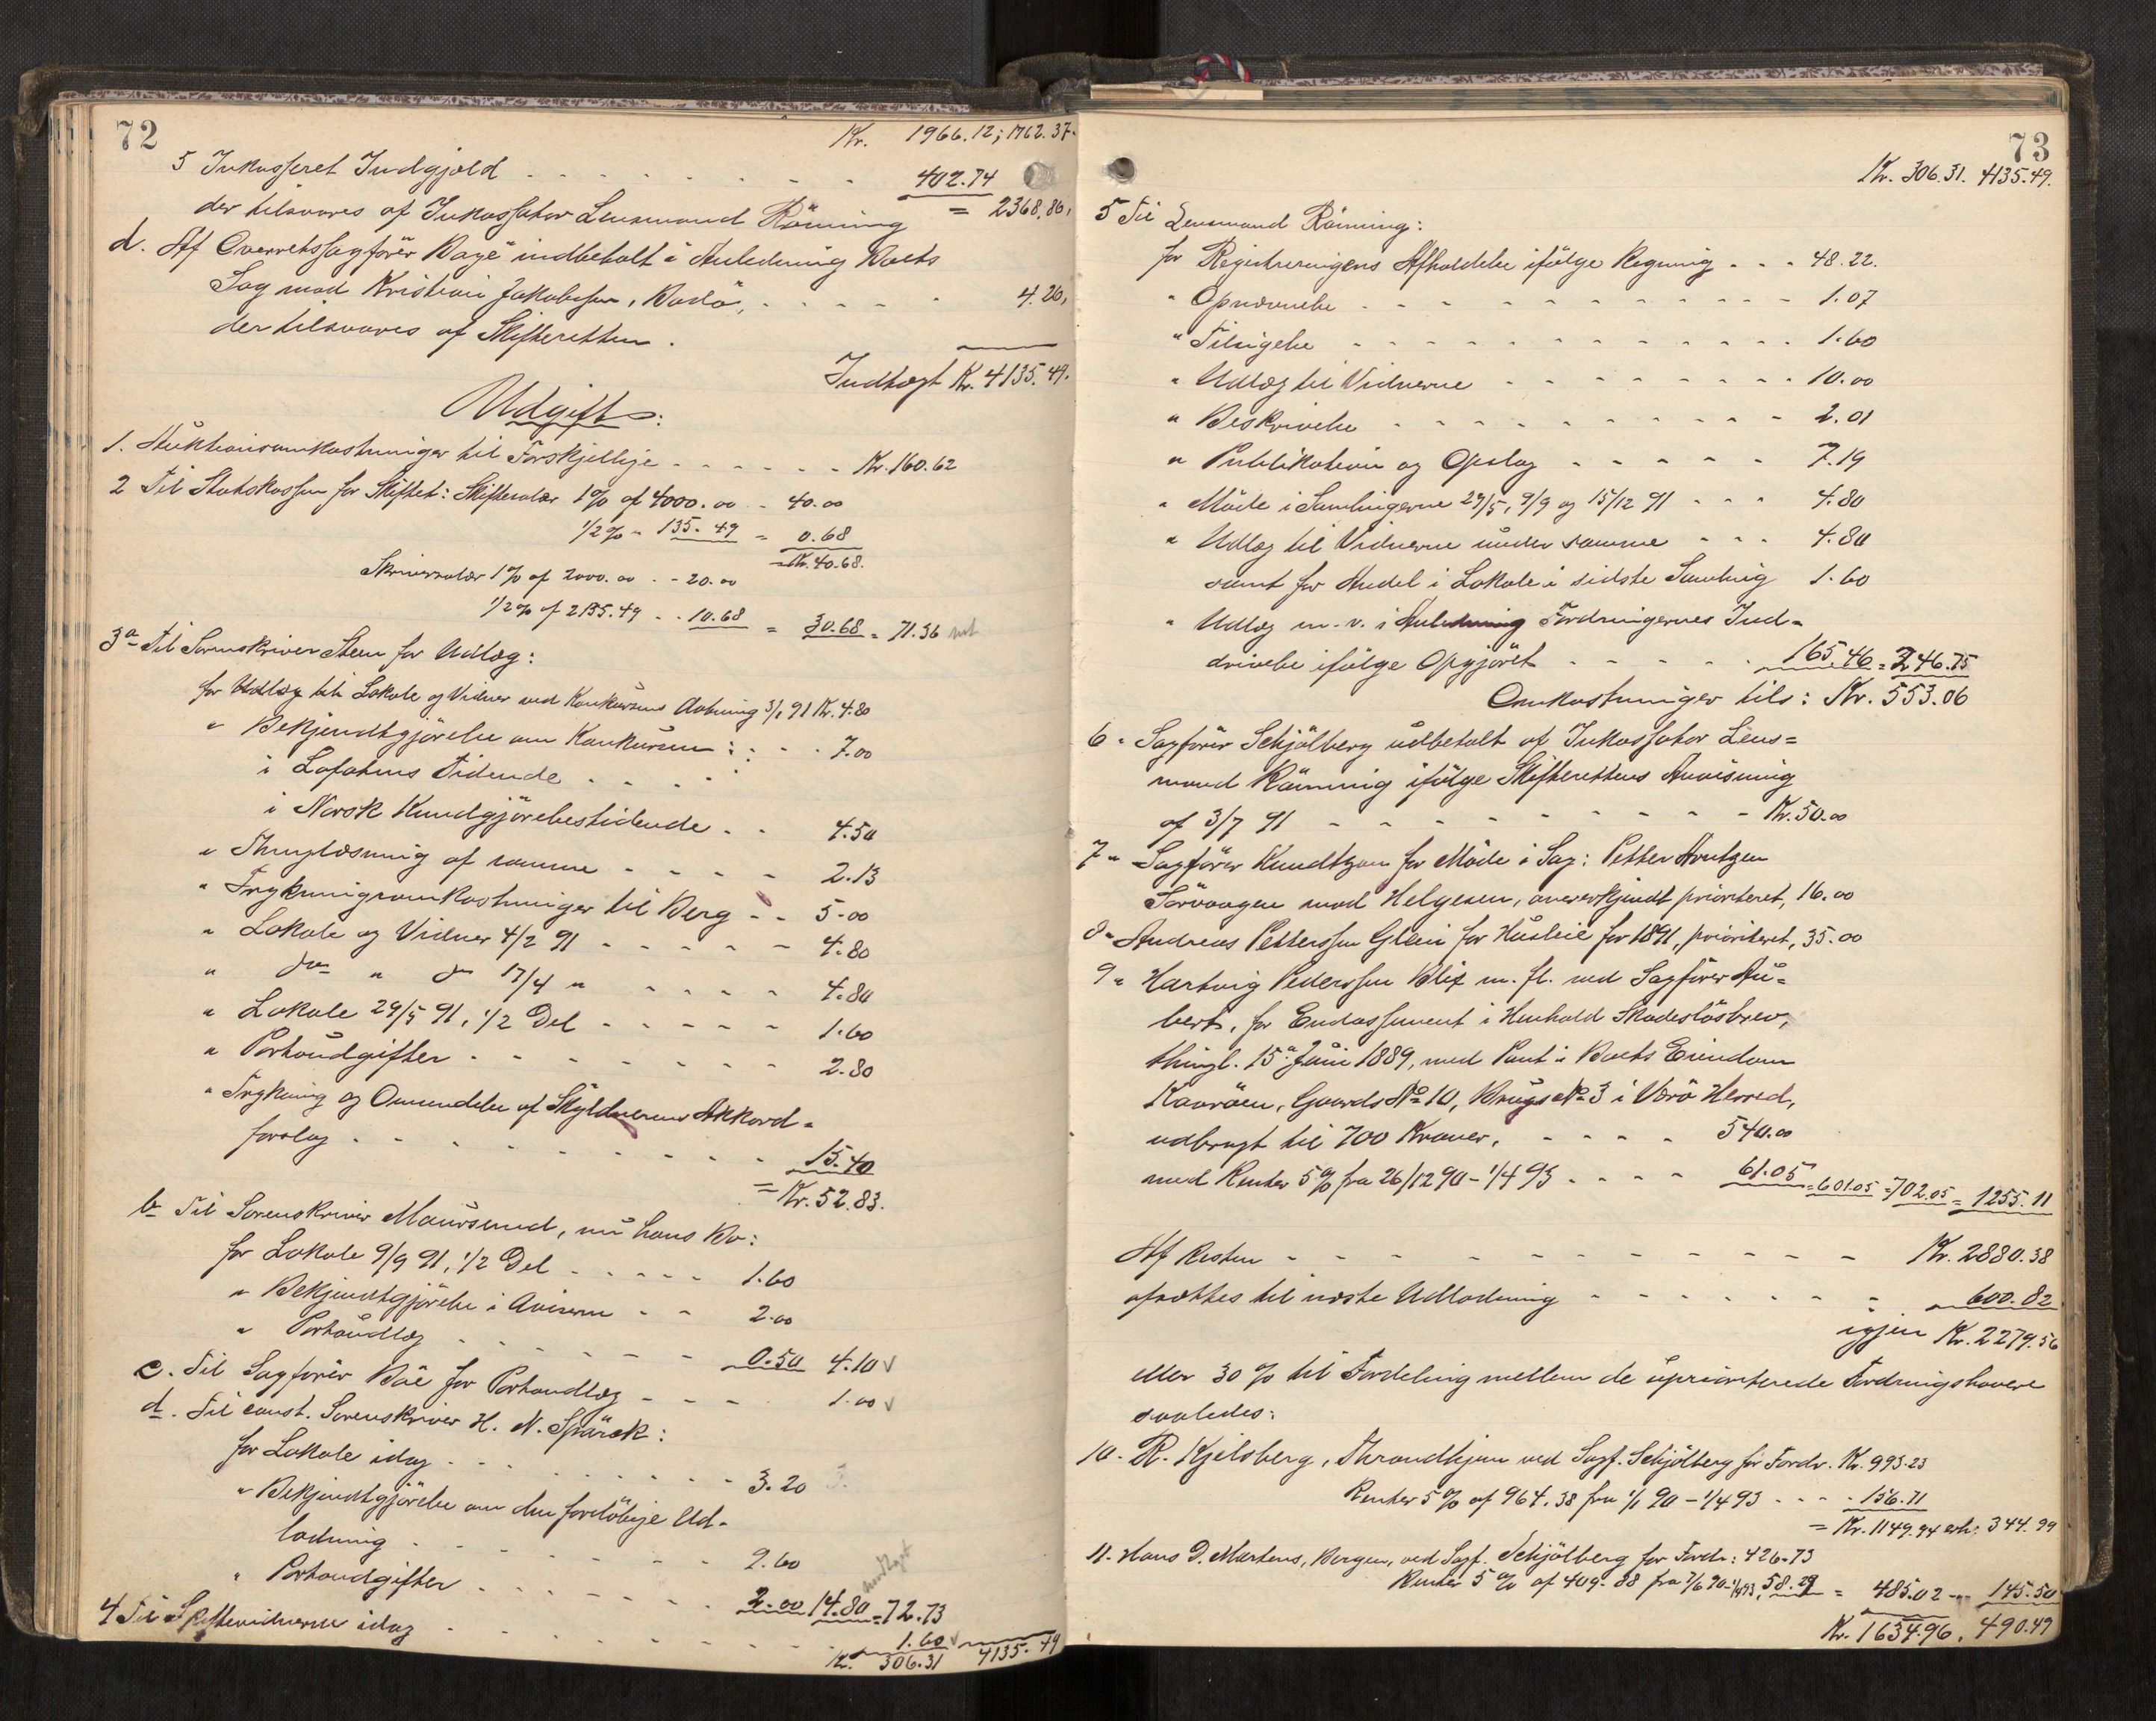 72
Kr. 1966.12; 1762.37.
5 Inkasseret Indgjæld - - - 402.74
der tilsvares af Inkassator Lensmand Rönning = 2368.86,
d. Af Overretssagförer Bagé indbetalt i Anledning Boets
Sag mod Kristian Jakobsen, Bodö, - - - 4.26,
der tilsvares af Skifteretten.
Indtægt Kr. 4135.49.
Udgift:
1. Auktionsomkostninger til Forskjellige - - - Kr. 160.62
2 Til Statskassen for Skiftet: Skiftesalær 1% af 4000.00 - 40.00
1/2% " 135.49 = 0.68
= Kr. 40.68.
Skriversalær 1% af 2000.00 - - 20.00
1/2% af 2135.49 - - 10.68 = 30.68 = 71.36
3a Til Sorenskriver Steen for Udlæg:
for Udlæg til Lokale og Vidner ved Konkursens Aabning 3/1 91 Kr. 4.80
" Bekjendtgjörelse om Konkursen : : - - 7.00
i Lofotens Tidende - - -
i Norsk Kundgjörelsestidende - - 4.50
" Thinglæsning af samme - - - 2.13
" Trykningsomkostninger til Berg - - 5.00
" Lokale og Vidner 4/2 91 - - - 4.80
" do " do 17/4 " - - - 4.80
" Lokale 29/5 91, 1/2 Del - - - 1.60
" Portoudgifter - - - 2.80
" Trykning og Omsendelse af Skyldnerens Akkord-
forslag - - - 15.40
= Kr. 52.83.
b Til Sorenskriver Maursund, nu hans Bo:
for Lokale 9/9 91, 1/2 Del - - - 1.60
" Bekjendtgjörelse i Aviserne - - 2.00
" Portoudlæg - - - 0.50 4.10 v
c. Til Sagförer Böe for Portoudlæg - - - 1.00 v
d. Til const. Sorenskriver H. N. Spärck:
for Lokale idag - - - 3.20 3.
" Bekjendtgjörelse om den forelöbige Ud-
lodning - - - 9.60
" Portoudgifter - - - 2.00 14.80 = 72.73
4 Til Skiftevidnerne idag - - - 1.60 v
Kr. 306.31 4135.49
73
Kr. 306.31. 4135.49.
5 Til Lensmand Rönning:
for Registreringens Afholdelse ifölge Regning - - - 48.22.
" Opnævnelse - - - 1.07
" Tilsigelse - - - 1.60
" Udlæg til Vidnerne - - - 10.00
" Beskrivelse - - - 2.01
" Publikation og Opslag - - - 7.19
" Möde i Samlingerne 29/5, 9/9 og 15/12 91 - - - 4.80
" Udlæg til Vidnerne under samme - - - 4.80
samt for Andel i Lokale i sidste Samling 1.60
" Udlæg m. v. i Anledning Fordringernes Ind-
drivelse ifölge Opgjöret - - - 165.46 = 246.75
Omkostninger tils: Kr. 553.06
6 " Sagförer Schjölberg udbetalt af Inkassator Lens=
mand Rönning ifölge Skifterettens Anvisning
af 3/7 91 - - - Kr. 50.00
7 " Sagförer Knudtzon for Möde i Sag: Petter Arntzen
Sörvaagen mod Helgesen, anerkjendt prioriteret, 16.00
8 " Andreas Petterssen Glein for Husleie for 1891, prioriteret, 35.00
9 " Hartvig Pederssen Blix m. fl. ved Sagförer Au-
bert, for Endossement i Henhold Skadeslösbrev,
thingl. 15. Juni 1889, med Pant i Boets Eiendom
Kavröen, Gaards No 10, Brugs No 3 i Værö Herred,
udbragt til 700 Kroner, - - - 540.00
med Renter 5% fra 26/12 90 - 1/4 93 - - - 61.05 = 601.05 = 702.05 = 1255.11
Af Resten - - - Kr. 2880.38
afsættes til næste Udlodning - - - 600.82
igjen Kr. 2279.56
eller 30% til Fordeling mellem de uprioriterede Fordringshavere
saaledes:
10. R. Kjelsberg, Throndhjem ved Sagf. Schjölberg for Fordr. Kr. 993.23
Renter 5% af 964.38 fra 1/1 90 - 1/4 93 - - - 156.71
= Kr. 1149.94 erh: 344.99
11. Hans D. Martens, Bergen, ved Sagf. Schjölberg for Fordr: 426.73
Renter 5% af 409.88 fra 7/6 90 - 1/4 93, 58.29 = 485.02 - " 145.50
Kr. 1634.96. 490.49